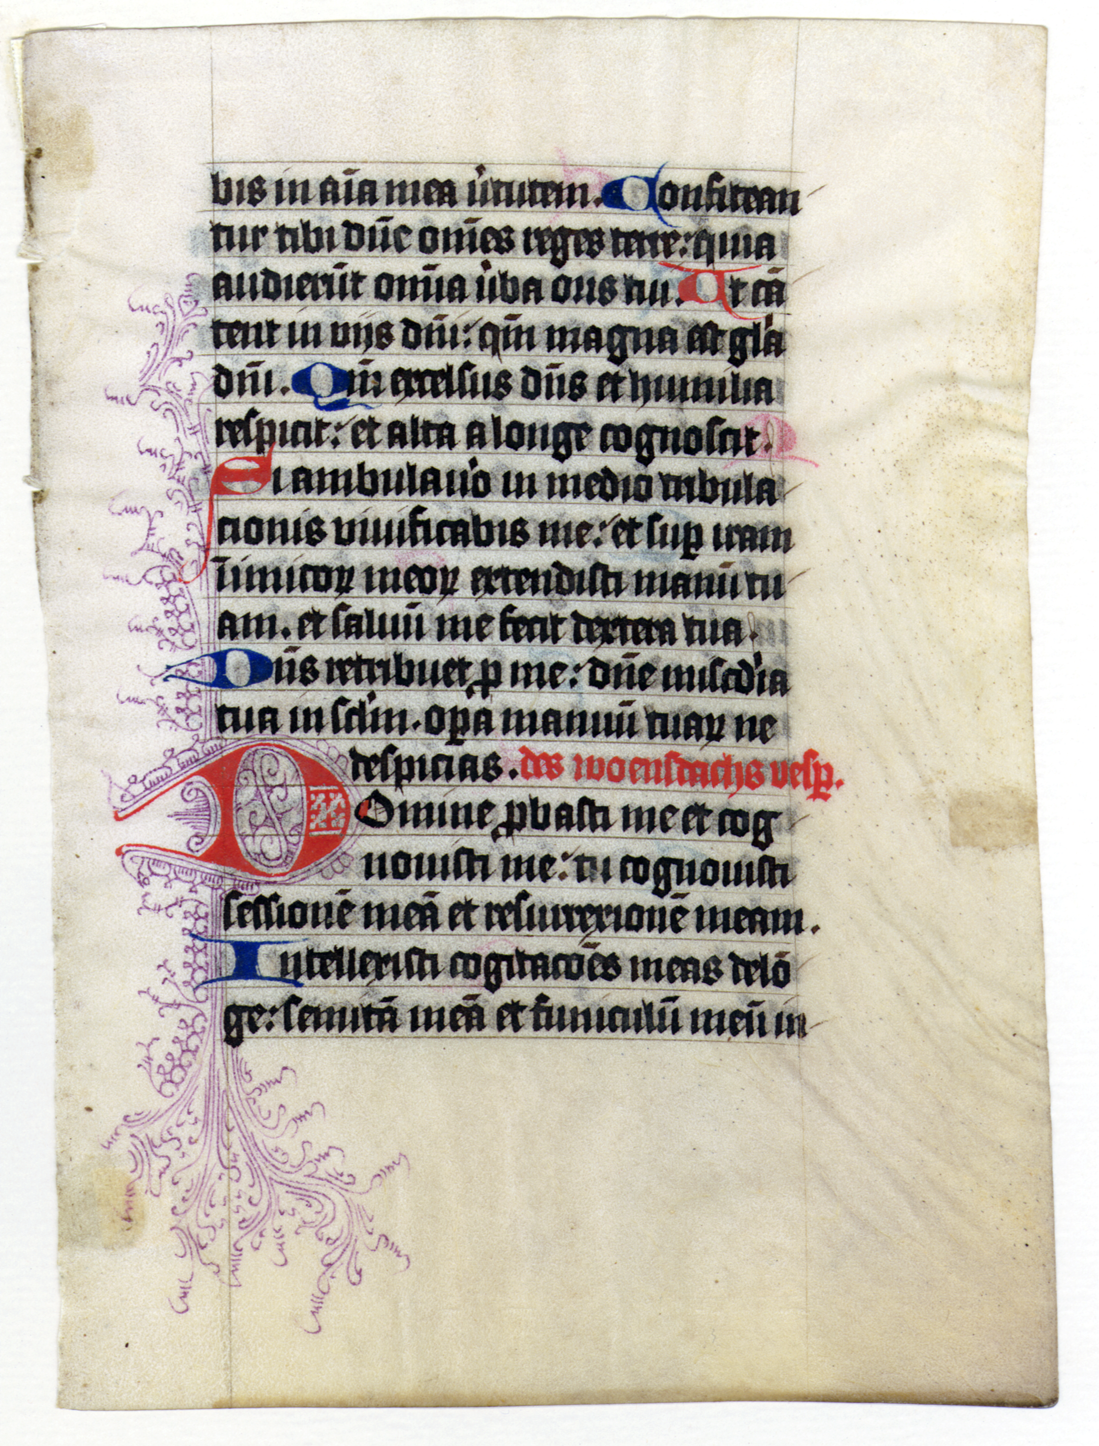 bis in aīa mea ūtutem. Confitean
tur tibi dn̄e om̄es reges terre: quia
audierūt om̄ia ūba oris tui. Et cā
tent in viis dn̄i: qm̄ magna est gl'a
dn̄i. Qm̄ excelsus dn̄s et humilia
respicit: et alta a longe cognoscit.
Si ambulau'o in medio tribula
tionis viuificabis me: et suꝑ iram
inimicoꝝ meoꝝ extendisti manū tu
am. et saluū me fecit dextera tua.
Dn̄s retribuet ꝓ me: dn̄e miscd'ia
tua in sc̄lm. oꝑa manuū tuaꝝ ne
despicias. des woenstachs vesꝑ.
Domine ꝓbasti me et cog
nouisti me: tu cognouisti
sessionē meā et resurrexionē meam.
Intellexisti cogitacōes meas de lō
ge: semitā meā et funiculū meū in